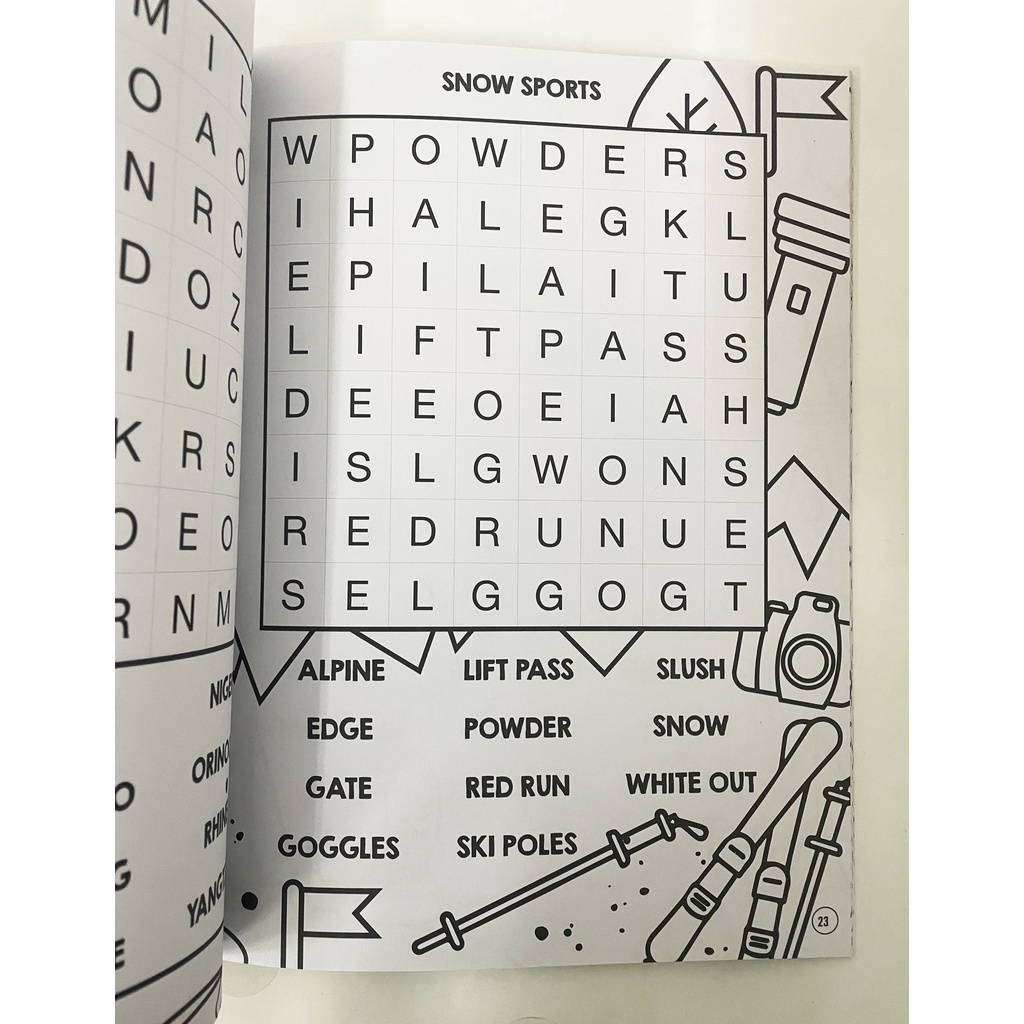 SNOW SPORTS
W P O W D E R S
I H A L E G K L
E P I L A I T U
L I F T P A S S
D E E O E I A H
I S L G W O N S
R E D R U N U E
S E L G G O G T
ALPINE LIFT PASS SLUSH
EDGE POWDER SNOW
GATE RED RUN WHITE OUT
GOGGLES SKI POLES
23
M I L
O A O
N R C
D O Z
I U C
K R S
O E O
R N M